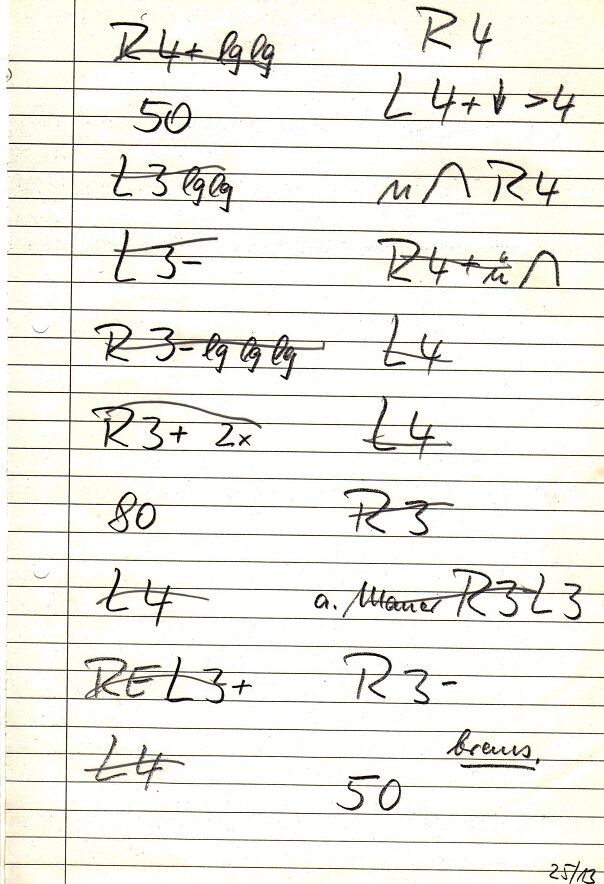 R4+ lg lg
50
L3 lg lg
L3-
R3- lg lg lg
R3+ 2x
80
L4
RE L3+
L4
R4
L4+ ↓ >4
ü ∩ R4
R4+ ü ∩
L4
L4
R3
a. Mauer R3 L3
R3-
brems.
50
25/13